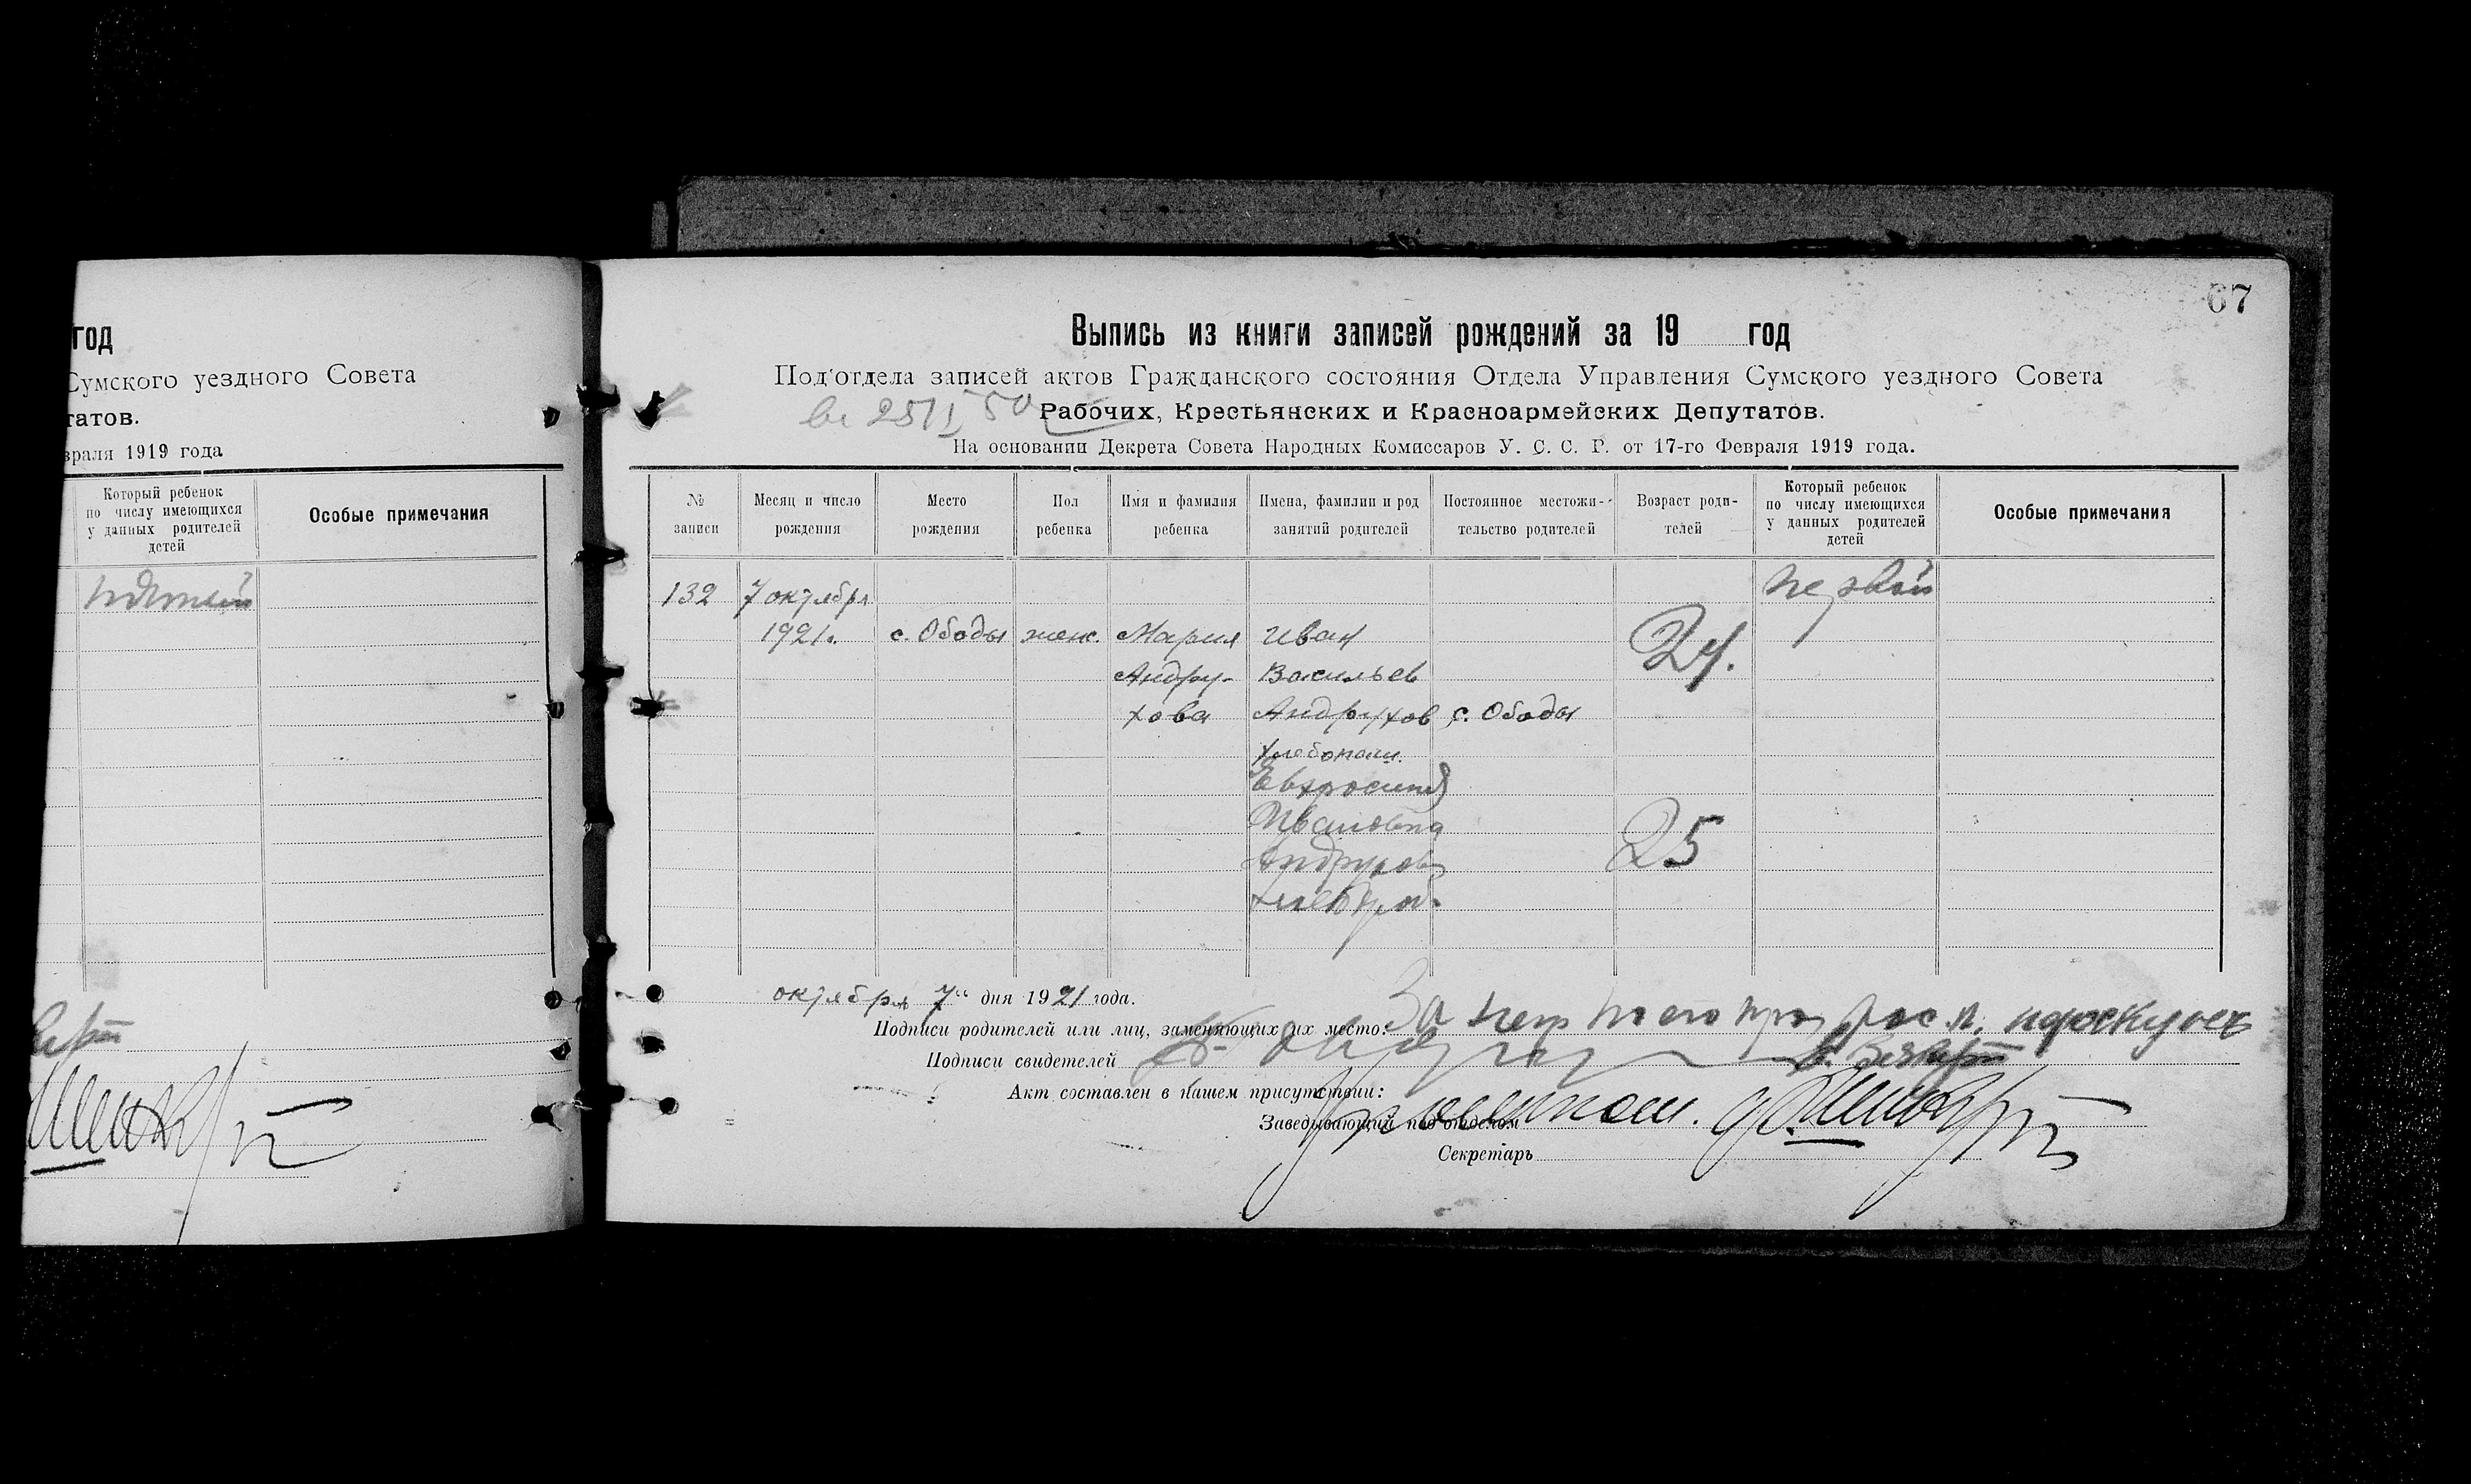 год
Сумского уездного Совета
татов.
враля 1919 года
Который ребенок
по числу имеющихся
у данных родителей
детей
Особые примечания
67
Выпись из книги записей рождений за 19 год
Под'отдела записей актов Гражданского состояния Отдела Управления Сумского уездного Совета
Рабочих, Крестьянских и Красноармейских Депутатов.
На основании Декрета Совета Народных Комиссаров У. С. С. Р. от 17-го Февраля 1919 года.
№
записи
Месяц и число
рождения
Место
рождения
Пол
ребенка
Имя и фамилия
ребенка
Имена, фамилии и род
занятий родителей
Постоянное местожи-
тельство родителей
Возраст роди-
телей
Который ребенок
по числу имеющихся
у данных родителей
детей
Особые примечания
132
7 октября
1921.
с. Ободы
женс.
Мария
Андру-
хова
Иван
Васильев
Андрухов
хлебопаш.
Евхросиня
Ивановна
Андрухова
с. Ободы
24.
25
первый
октября 7" дня 1921 года.
Подписи родителей или лиц, заменяющих их место:
За негр
Подписи свидетелей
Акт составлен в нашем присутствии:
Заведывающий под'отделом
Секретарь